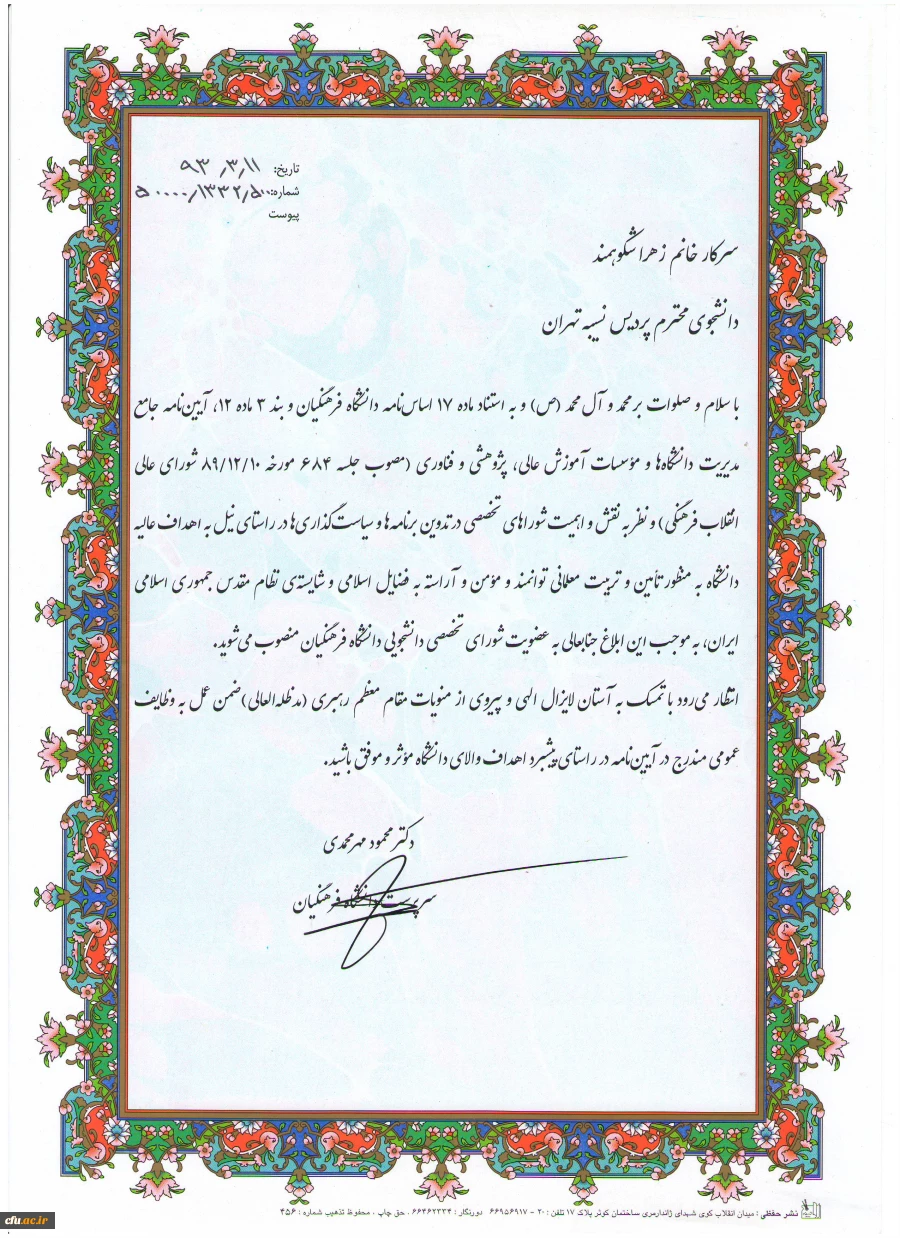 تاریخ: ۹۳/۳/۱۱
شماره: ۵۰۰۰۰/۱۳۳۲/۵۰۰
پیوست
سرکار خانم زهرا شکوهمند
دانشجوی محترم پردیس نسیبه تهران
با سلام و صلوات بر محمد و آل محمد (ص) و به استناد ماده ۱۷ اساس‌نامه دانشگاه فرهنگیان و بند ۳ ماده ۱۲، آیین‌نامه جامع
مدیریت دانشگاه‌ها و مؤسسات آموزش عالی، پژوهشی و فناوری (مصوب جلسه ۶۸۴ مورخه ۸۹/۱۲/۱۰ شورای عالی
انقلاب فرهنگی) و نظر به نقش و اهمیت شوراهای تخصصی در تدوین برنامه‌ها و سیاست‌گذاری‌ها در راستای نیل به اهداف عالیه
دانشگاه به منظور تأمین و تربیت معلمانی توانمند و مؤمن و آراسته به فضایل اسلامی و شایسته‌ی نظام مقدس جمهوری اسلامی
ایران، به موجب این ابلاغ جنابعالی به عضویت شورای تخصصی دانشجویی دانشگاه فرهنگیان منصوب می‌شوید.
انتظار می‌رود با تمسک به آستان لایزال الهی و پیروی از منویات مقام معظم رهبری (مدظله‌العالی) ضمن عمل به وظایف
عمومی مندرج در آیین‌نامه در راستای پیشبرد اهداف والای دانشگاه مؤثر و موفق باشید.
دکتر محمود مهرمحمدی
سرپرست دانشگاه فرهنگیان
نشر حفظی : میدان انقلاب کوی شهدای ژاندارمری ساختمان کوثر پلاک ۱۷ تلفن : ۲۰ - ۶۶۹۵۶۹۱۷ دورنگار : ۶۶۴۶۲۳۳۴ ، حق چاپ ، محفوظ تذهیب شماره : ۴۵۶
cfu.ac.ir